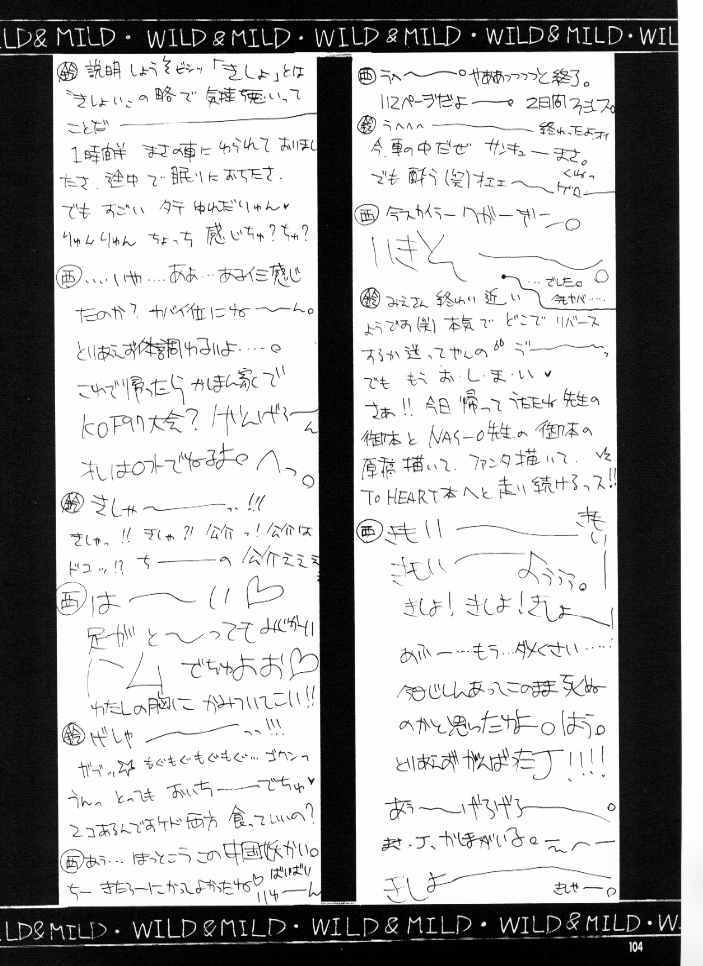 WILD & MILD・WILD & MILD・WILD & MILD・WILD & MILD・WIL
鈴 説明しようぞビシッ「きしょ」とは
きしょいの略で気持悪いって
ことだ
1時間半 まさの車にゆられておりまし
たさ.途中で眠りにおちたさ.
でもすごい タテゆれだりゅん♥
りゅんりゅん ちょっち感じちゅ?ちゅ?
西 ‥‥いや‥‥ああ‥‥あるイミ感じ
たのか?ヤバイ位にねーーん。
とりあえず体調わるいよ‥‥。
これで帰ったらかほん家で
KOF97大会?
へっ。
鈴 きしゃ〜〜っ.!!!
きしゃっ!!きしゃ?!公介っ!公介は
ドコッ!?ちーーの公介ええ
西 は〜〜い♡
足がと〜ってもみじかい
ハム でちゅよお♡
わたしの胸にかみついてこい!!
鈴 げしゃ ーーーっっ!!!
もぐもぐもぐもぐ…ゴクンっ
うんっとってもおいちーーでちゅ♥
2コあるんですケド両方 食っていいの?
西 あう…ほっとこうこの中国妖かい。
ちー きたろーにかってよかったね♡ ばいばい
西 うへ〜〜。やああっっっっと終了。
112ページだよーー。2日間
鈴 うへへへ ーーーー終わったよオイ
今、車の中だぜ サンキューまさ。
でも酔う(笑)オエェ〜〜
ゲロー
西 今スカイラークがーずー
いきど
‥‥でした。
鈴 みえさん終わり近い
ようです(笑)本気でどこでリバース
するか迷ってやんの
でも もう お・し・ま・い♥
さあ!!今日帰ってうたたね先生の
御本とNAS-O先生の御本の
原稿描いて、ファンタ描いて、
TO HEART本へと走り続けるっス!!
西 きもい ーーーー きもい
きもい ーー ようううう。
きしょ!きしょ!きしょーー
あふー…もう‥ダメくさい‥‥
今日じしんあってこのまま死ぬ
のかと思ったわよ。はう。
とりあえずがんばった丁!!!!
あう〜〜げろげろーーー。
きしょ ーーーー きしゃー。
LD&MILD・WILD & MILD・WILD & MILD・WILD & MILD・W
104